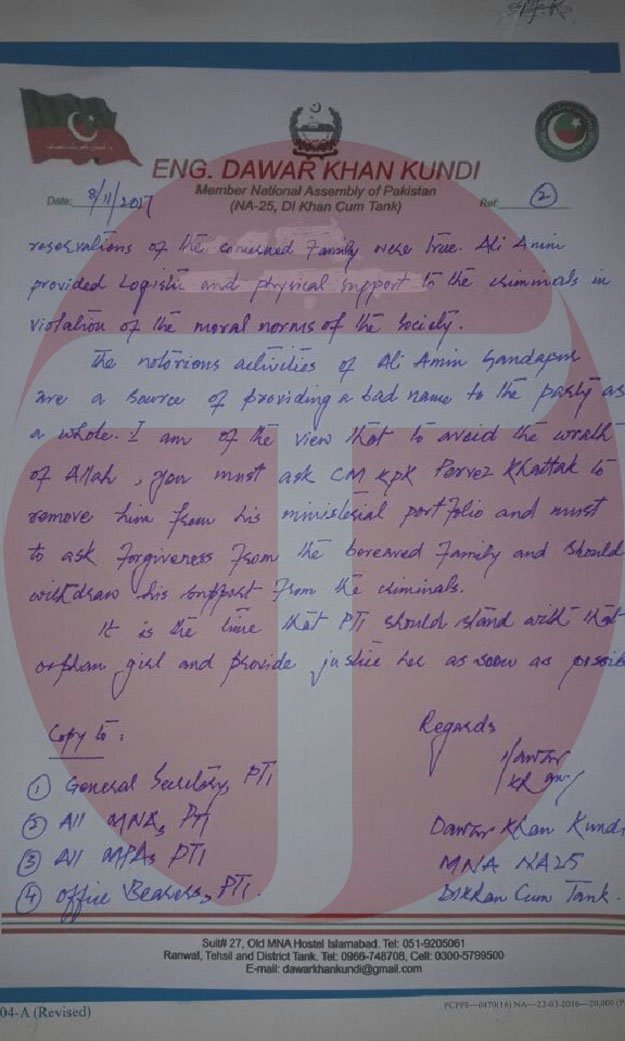 ENG. DAWAR KHAN KUNDI
Member National Assembly of Pakistan
(NA-25, DI Khan Cum Tank)
Date: 8/11/2017 Ref: 2
reservations of the concerned Family were true. Ali Amin
provided Logistic and physical support to the criminals in
violation of the moral norms of the society.
The notorious activities of Ali Amin Gandapur
are a source of providing a bad name to the party as
a whole. I am of the view that to avoid the wrath
of Allah, you must ask CM KPK Pervez Khattak to
remove him from his ministerial portfolio and must
to ask Forgiveness From the bereaved Family and should
withdraw his support From the criminals.
It is the time that PTI should stand with that
orphan girl and provide justice her as soon as possib
Copy to:
Regards
Dawar
Khan
1 General Secretary, PTI
2 All MNAs, PTI
3 All MPAs PTI
4 Office Bearers, PTI.
Dawar Khan Kundi
MNA NA25
DIKhan Cum Tank.
Suit# 27, Old MNA Hostel Islamabad. Tel: 051-9205061
Ranwal, Tehsil and District Tank. Tel: 0966-748708, Cell: 0300-5799500
E-mail: dawarkhankundi@gmail.com
04-A (Revised)
PCPPI—0470(16) NA—22-03-2016—20,000 (P